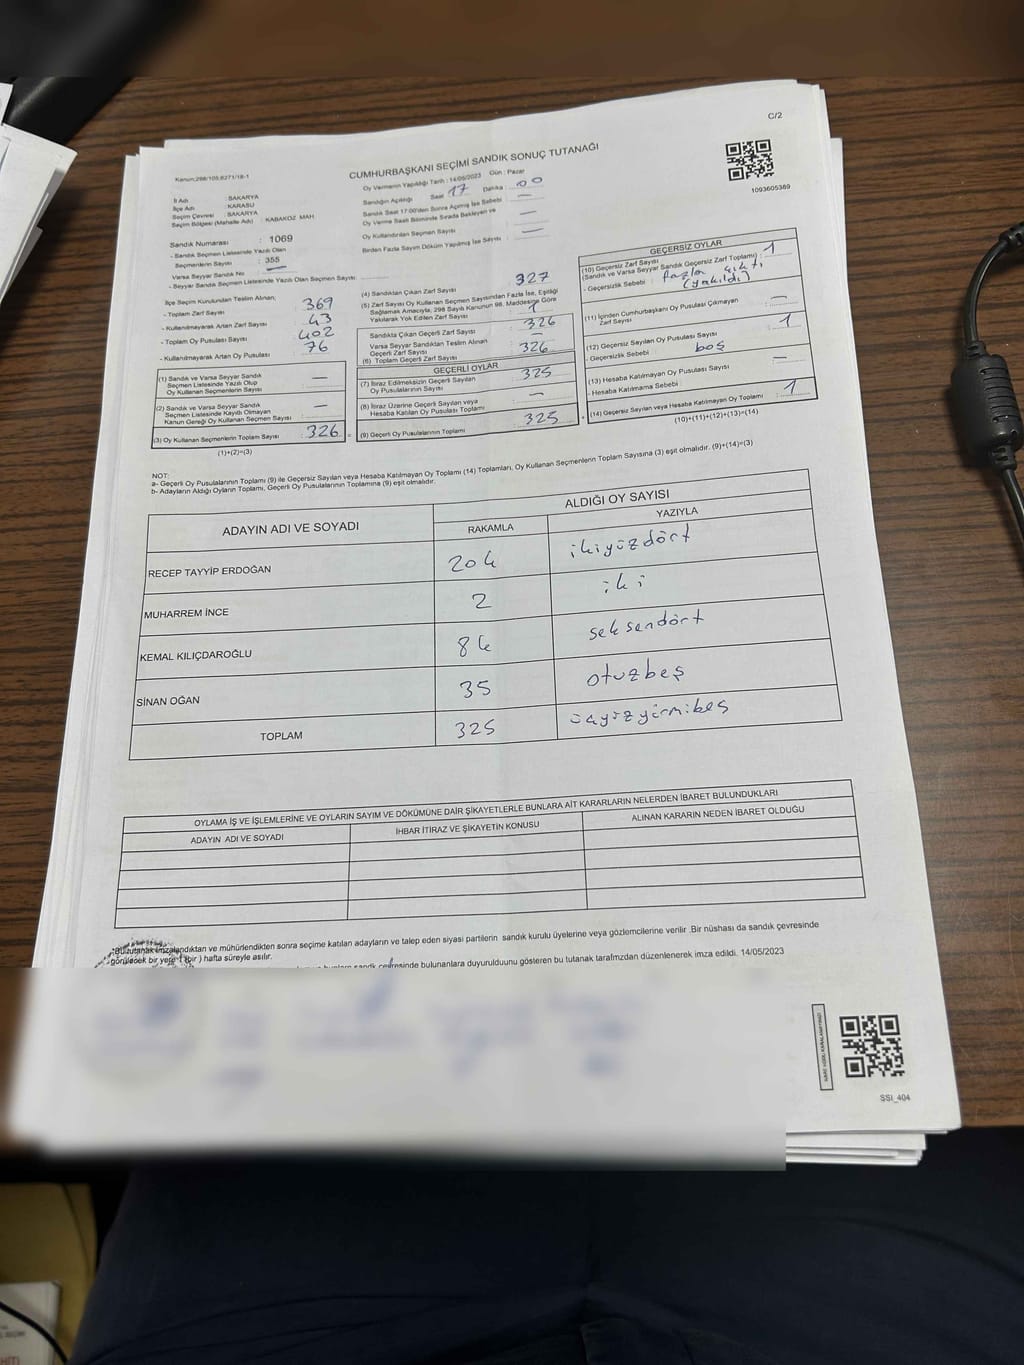 C/2
Kanun:298/105,6271/18-1
CUMHURBAŞKANI SEÇİMİ SANDIK SONUÇ TUTANAĞI
1093605389
İl Adı : SAKARYA
İlçe Adı : KARASU
Seçim Çevresi : SAKARYA
Seçim Bölgesi (Mahalle Adı) : KABAKOZ MAH
Sandık Numarası : 1069
- Sandık Seçmen Listesinde Yazılı Olan
Seçmenlerin Sayısı : 355
Varsa Seyyar Sandık No
- Seyyar Sandık Seçmen Listesinde Yazılı Olan Seçmen Sayısı:
Oy Vermenin Yapıldığı Tarih : 14/05/2023 Gün : Pazar
Sandığın Açıldığı Saat 17 Dakika 00
Sandık Saat 17:00'den Sonra Açılmış İse Sebebi
Oy Verme Saati Bitiminde Sırada Bekleyen ve
Oy Kullandırılan Seçmen Sayısı
Birden Fazla Sayım Döküm Yapılmış İse Sayısı :
İlçe Seçim Kurulundan Teslim Alınan;
- Toplam Zarf Sayısı : 369
- Kullanılmayarak Artan Zarf Sayısı : 43
- Toplam Oy Pusulası Sayısı : 402
- Kullanılmayarak Artan Oy Pusulası : 76
(1) Sandık ve Varsa Seyyar Sandık
Seçmen Listesinde Yazılı Olup
Oy Kullanan Seçmenlerin Sayısı : —
(2) Sandık ve Varsa Seyyar Sandık
Seçmen Listesinde Kayıtlı Olmayan
Kanun Gereği Oy Kullanan Seçmen Sayısı : —
(3) Oy Kullanan Seçmenlerin Toplam Sayısı : 326
(1)+(2)=(3)
(4) Sandıktan Çıkan Zarf Sayısı 327
(5) Zarf Sayısı Oy Kullanan Seçmen Sayısından Fazla İse, Eşitliği
Sağlamak Amacıyla, 298 Sayılı Kanunun 98. Maddesine Göre
Yakılarak Yok Edilen Zarf Sayısı : 1
Sandıkta Çıkan Geçerli Zarf Sayısı : 326
Varsa Seyyar Sandıktan Teslim Alınan
Geçerli Zarf Sayısı : —
(6) Toplam Geçerli Zarf Sayısı : 326
GEÇERLİ OYLAR
(7) İtiraz Edilmeksizin Geçerli Sayılan
Oy Pusulalarının Sayısı : 325
(8) İtiraz Üzerine Geçerli Sayılan veya
Hesaba Katılan Oy Pusulası Toplamı : —
(9) Geçerli Oy Pusulalarının Toplamı : 325
GEÇERSİZ OYLAR
(10) Geçersiz Zarf Sayısı
(Sandık ve Varsa Seyyar Sandık Geçersiz Zarf Toplamı) : 1
- Geçersizlik Sebebi : fazla çıktı
(yakıldı)
(11) İçinden Cumhurbaşkanı Oy Pusulası Çıkmayan
Zarf Sayısı : —
(12) Geçersiz Sayılan Oy Pusulası Sayısı : 1
- Geçersizlik Sebebi : boş
(13) Hesaba Katılmayan Oy Pusulası Sayısı : —
- Hesaba Katılmama Sebebi :
(14) Geçersiz Sayılan veya Hesaba Katılmayan Oy Toplamı : 1
(10)+(11)+(12)+(13)=(14)
NOT:
a- Geçerli Oy Pusulalarının Toplamı (9) ile Geçersiz Sayılan veya Hesaba Katılmayan Oy Toplamı (14) Toplamları, Oy Kullanan Seçmenlerin Toplam Sayısına (3) eşit olmalıdır. (9)+(14)=(3)
b- Adayların Aldığı Oyların Toplamı, Geçerli Oy Pusulalarının Toplamına (9) eşit olmalıdır.
ADAYIN ADI VE SOYADI ALDIĞI OY SAYISI
RAKAMLA YAZIYLA
RECEP TAYYİP ERDOĞAN 204 ikiyüzdört
MUHARREM İNCE 2 iki
KEMAL KILIÇDAROĞLU 84 seksendört
SİNAN OĞAN 35 otuzbeş
TOPLAM 325 üçyüzyirmibeş
OYLAMA İŞ VE İŞLEMLERİNE VE OYLARIN SAYIM VE DÖKÜMÜNE DAİR ŞİKAYETLERLE BUNLARA AİT KARARLARIN NELERDEN İBARET BULUNDUKLARI
ADAYIN ADI VE SOYADI İHBAR İTİRAZ VE ŞİKAYETİN KONUSU ALINAN KARARIN NEDEN İBARET OLDUĞU
*Bu tutanak imzalandıktan ve mühürlendikten sonra seçime katılan adayların ve talep eden siyasi partilerin sandık kurulu üyelerine veya gözlemcilerine verilir .Bir nüshası da sandık çevresinde
görülecek bir yere 1 (bir ) hafta süreyle asılır.
sandık çevresinde bulunanlara duyurulduunu gösteren bu tutanak tarafmzdan düzenlenerek imza edildi. 14/05/2023
SSI_404